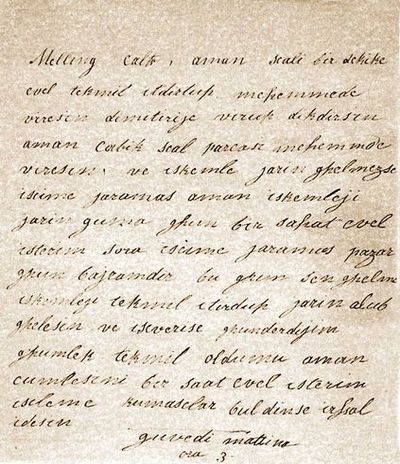 Melling Calfa, aman saati bir dekike
evel tekmil itdirtup mehemmede
viresin dimitrije virup dikdirsen
aman cabik saat parcase mehemmde
viresin. ve iskemle jarin ghelmezse
iscime jaramas aman iskemleji
jarin guma ghun bir sahat evel
isterim sora iscime jaramas pazar
ghun bajramder bu ghun sen ghelme
iskemleji tekmil itirdup jarin alub
ghelesen ve isverise ghunderdijim
ghumlek tekmil oldumu aman
cumlesini bir saat evel isterim
isileme kumasclar buldinse irssal
idesen
giuvedi mattina
ora 3